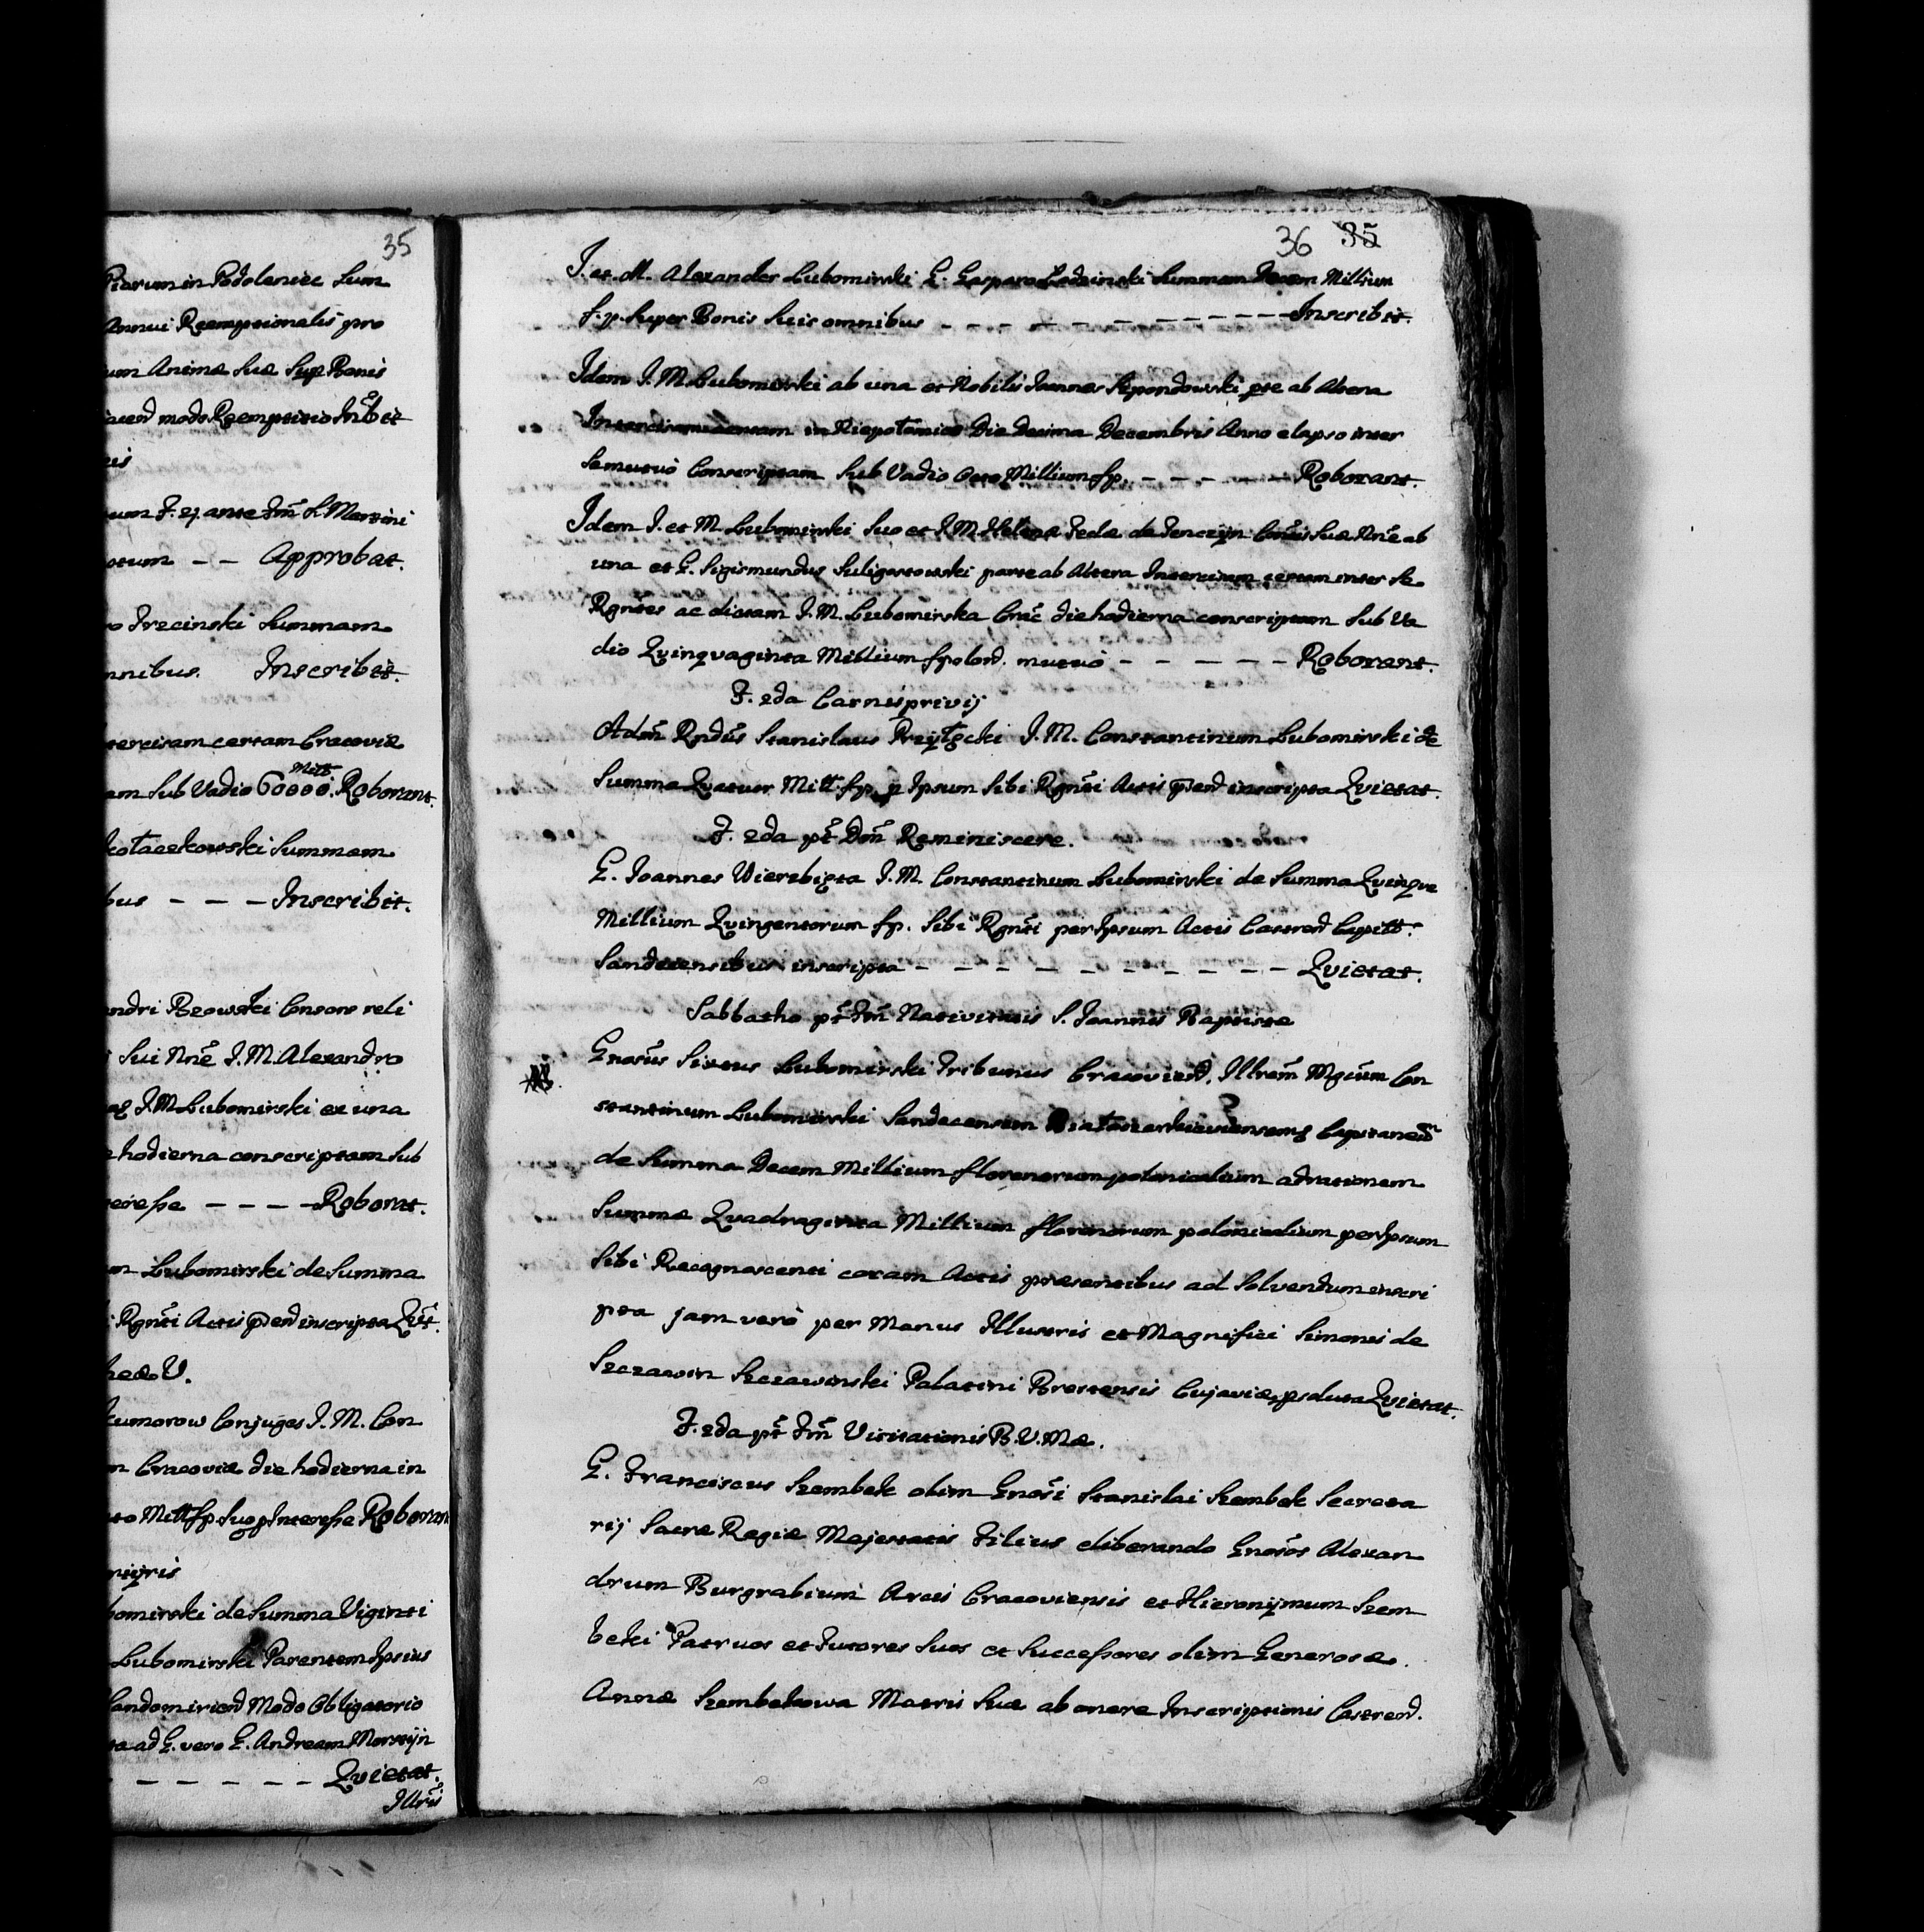 35
Piarum in Podolenice Sum
Annui Reemptionalis pro
um Animæ Suæ Sup Bonis
modo Reemptitio Inbit
eis
um F. 2j ante Fm S. Martini
otum -- Approbat.
o Trecinski Summam
nnibus. Inscribit.
tercisam certam Cracoviæ
Mill
em Sub Vadio 60000. Roborant.
kotaczkowski Summam
bus --- Inscribit.
andri Rzowski Consors reli
Sui Nne I. M. Alexandro
I M Lubomirski ex una
hodierna conscriptam Sub
eresse ---- Roborat.
m Lubomirski de Summa
Rgnti Actis pend inscripta Qvt.
heæ V.
Kumorow Conjuges I. M. Con
m Cracoviæ die hodierna in
to Mill fp Suo Interesse Roborant
omirski de Summa Viginti
Lubomirski Parentem Ipsius
andomiriend Modo Obligatorio
ta ad G. vero G. Andream Morstijn
----- Qvietat.
Illris
36 35
I. et M. Alexander Lubomirski G. Gasparo Lodzinski Summam Decem Millium
f. p. Super Bonis Suis omnibus ------------ Inscribit.
Idem I. M. Lubomirski ab una et Nobilis Joannes pte ab Altera
in Niepotomice Die Decima Decembris Anno elapso inter
Se mutuò Conscriptam Sub Vadio Octo Millium fp. ----- Roborant.
Idem I. et M. Lubomirski Suo et I. M. Helenæ Teclæ de Tenczyn Coñis Suæ Nñe ab
una et G. Sigismundus Suligostowski parte ab Altera Intercisam certam inter Se
Rgntes ac dictam I. M. Lubomirska Crac die hodierna conscriptam Sub Va
dio Qvinqvaginta Millium fpolond. mutuò ----- Roborant.
F. 2da Carnisprivij
Adm Rndus Stanislaus Przyłęcki I. M. Constantinum Lubomirski de
Summa Qvatuor Mill fp p Ipsum Sibi Rgnti Actis pend inscripta Qvietat.
F. 2da pt Dm Reminiscere.
G. Joannes Wierzbięta I. M. Constantinum Lubomirski de Summa Qvinqve
Millium Qvingentorum fp. Sibi Rgnti per Ipsum Actis Castrend Capitt.
Sandecensibus inscripta --------- Qvietat.
Sabbatho pt Fm Nativitatis S. Joannis Baptistæ
NB. Gnosus Sixtus Lubomirski Tribunus Cracoviend. Illrem Mgcum Con
stantinum Lubomirski Sandecensem Capitaned
de Summa Decem Millium florenorum polonicalium ad rationem
Summæ Qvadraginta Millium florenorum polonicalium per Ipsum
Sibi Recognoscenti coram Actis præsentibus ad Solvendum inscri
pta jam verò per Manus Illustris et Magnifici Simonis de
Szczawin Szczawinski Palatini Brestensis Cujaviæ psoluta Qvietat.
F. 2da pt Fm Visitationis B. V. Mæ.
G. Franciscus Szembek olim Gnosi Stanislai Szembek Secreta
rij Sacræ Regiæ Majestatis Filius eliberando Gnosos Alexan
drum Burgrabium Arcis Cracoviensis et Hieronijmum Szem
beki Patruos et Tutores Suos et Successores olim Generosæ
Annæ Szembekowa Matris Suæ ab onere Inscriptionis Castrend.